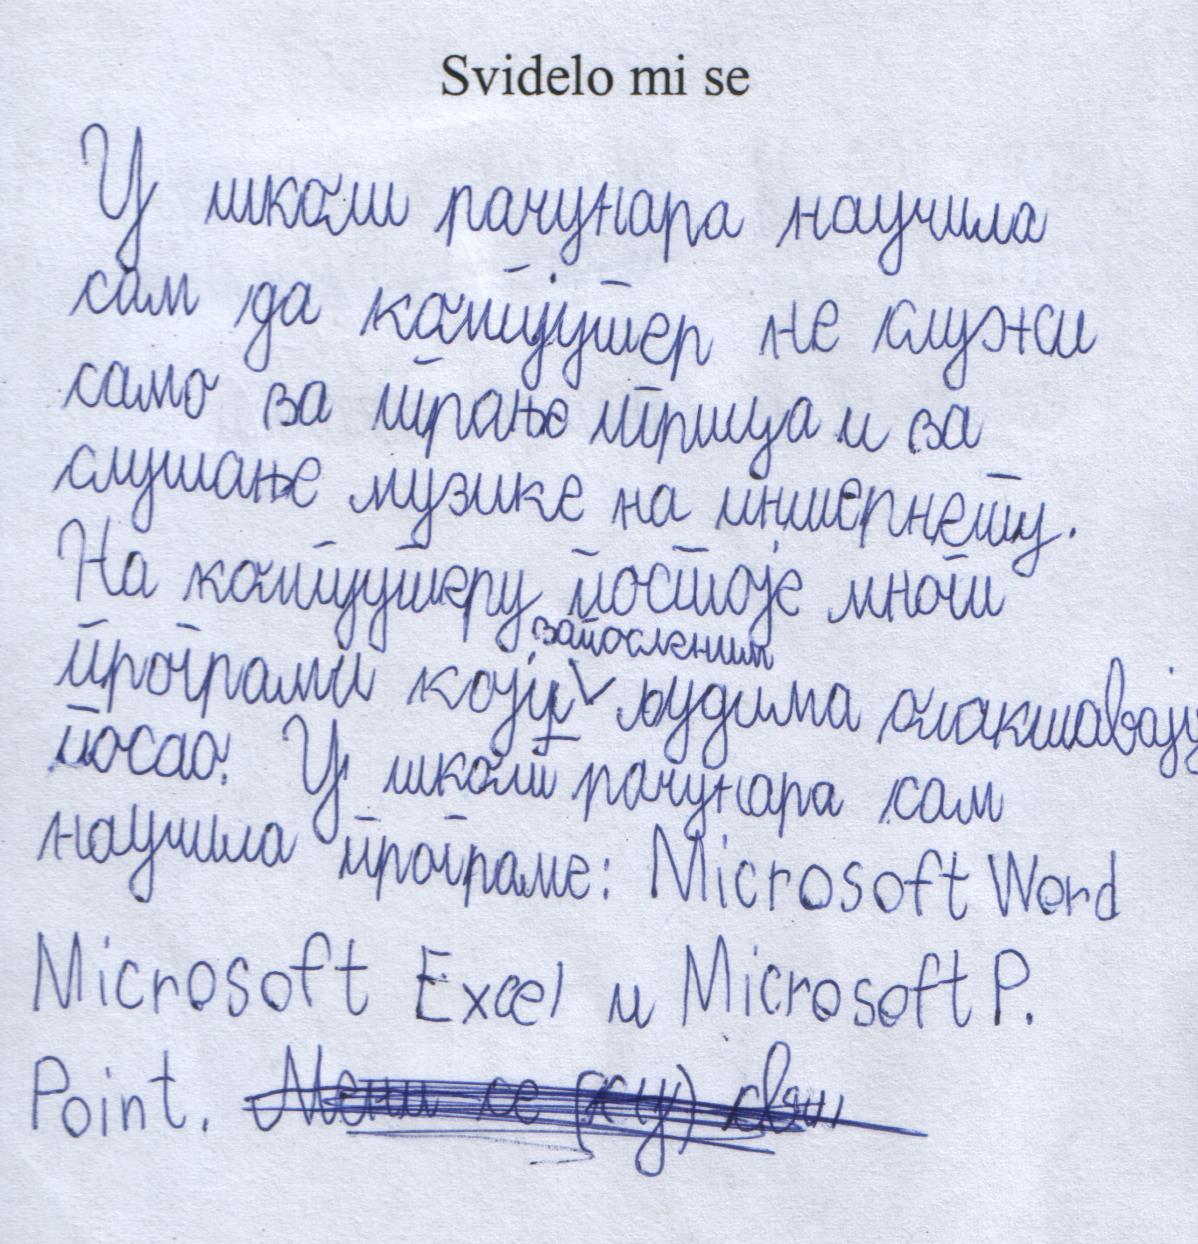 Svidelo mi se
У школи рачунара научила
сам да компјутер не служи
само за играње игрица и за
слушање музике на интернету.
На компјутеру постоје многи
запосленим
програми који људима олакшавају
посао. У школи рачунара сам
научила програме: Microsoft Word
Microsoft Excel и Microsoft P.
Point. Мени се (су)